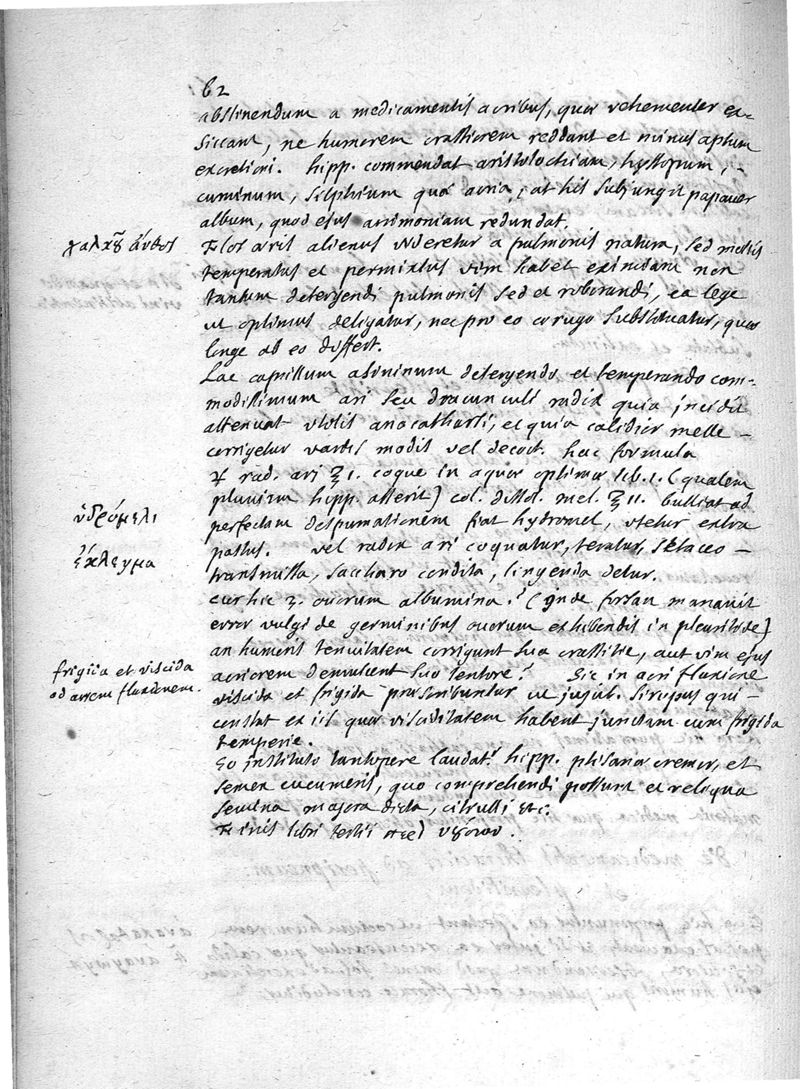 62
abstinendum a medicamentis acribus, quae vehementer ex-
siccant, ne humorem crassiorem reddant et minus aptum
excretioni. hipp. commendat aristolochiam, hyssopum,
cuminum, silphium quae acria, at his subjungit papaver
album, quod ejus acrimoniam retundat.
χαλκοῦ ἄνθος
Flos aeris alienus videretur a pulmonis natura, sed mellis
temperatus et permixtus vim habet eximiam non
tantum detergendi pulmonis sed et roborandi, ea lege
ut optimus deligatur, nec pro eo aerugo substituatur, quae
longe ab eo differt.
Lac caprillum asininum detergendo et temperando com-
modissimum ari seu dracunculi radix quia incidit
attenuat utilis anacatharsi, et quia calidior melle
corrigetur variis modis vel decoct. hac formula
♃ rad. ari ℥ 1. coque in aquae optimae lib. 1. (qualem
pluviam hipp. asserit) col. dissol. mel. ℥ II. bulliat ad
ὑδρόμελι
perfectam despumationem fiat hydromel, utetur extra
ἔκλειγμα
pastus. vel radix ari coquatur, teratur, setaceo
transmissa, saccharo condita, lingenda detur.
cur hic 3. ovorum albumina? (unde forsan manavit
error vulgi de germinibus ovorum exhibendis in pleuritide)
an humoris tenuitatem corrigunt sua crassitie, aut vim ejus
frigida et viscida
ad acrem fluxionem.
acriorem demulcent suo lentore? Sic in acri fluxione
viscida et frigida praescribuntur ut jujub. sirupus qui
constat ex iis quae visciditatem habent junctam cum frigida
temperie.
Eo instituto tantopere laudat hipp. ptisanae cremor, et
semen cucumeris, quo comprehendi possunt et reliqua
semina majora dicta, citrulli etc.
Finis libri tertii περὶ νούσων.